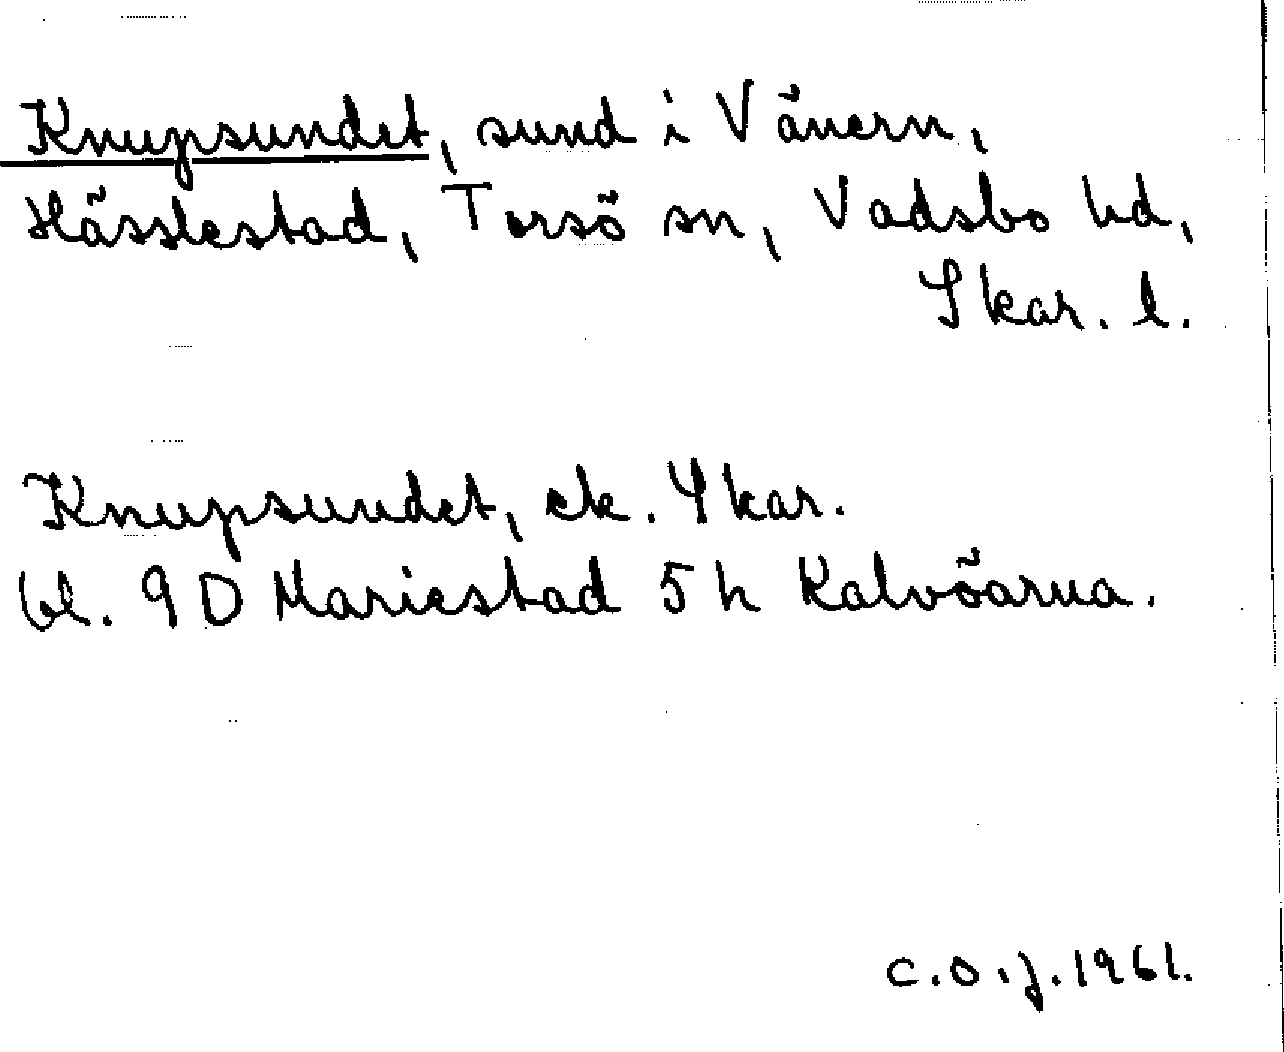 Knupsundet, sund i Vänern,
Hässlestad, Torsö sn, Vadsbo hd,
Skar. l.
Knupsundet, ek. Skar.
bl. 9D Mariestad 5h Kalvöarna.
C.O.J. 1961.